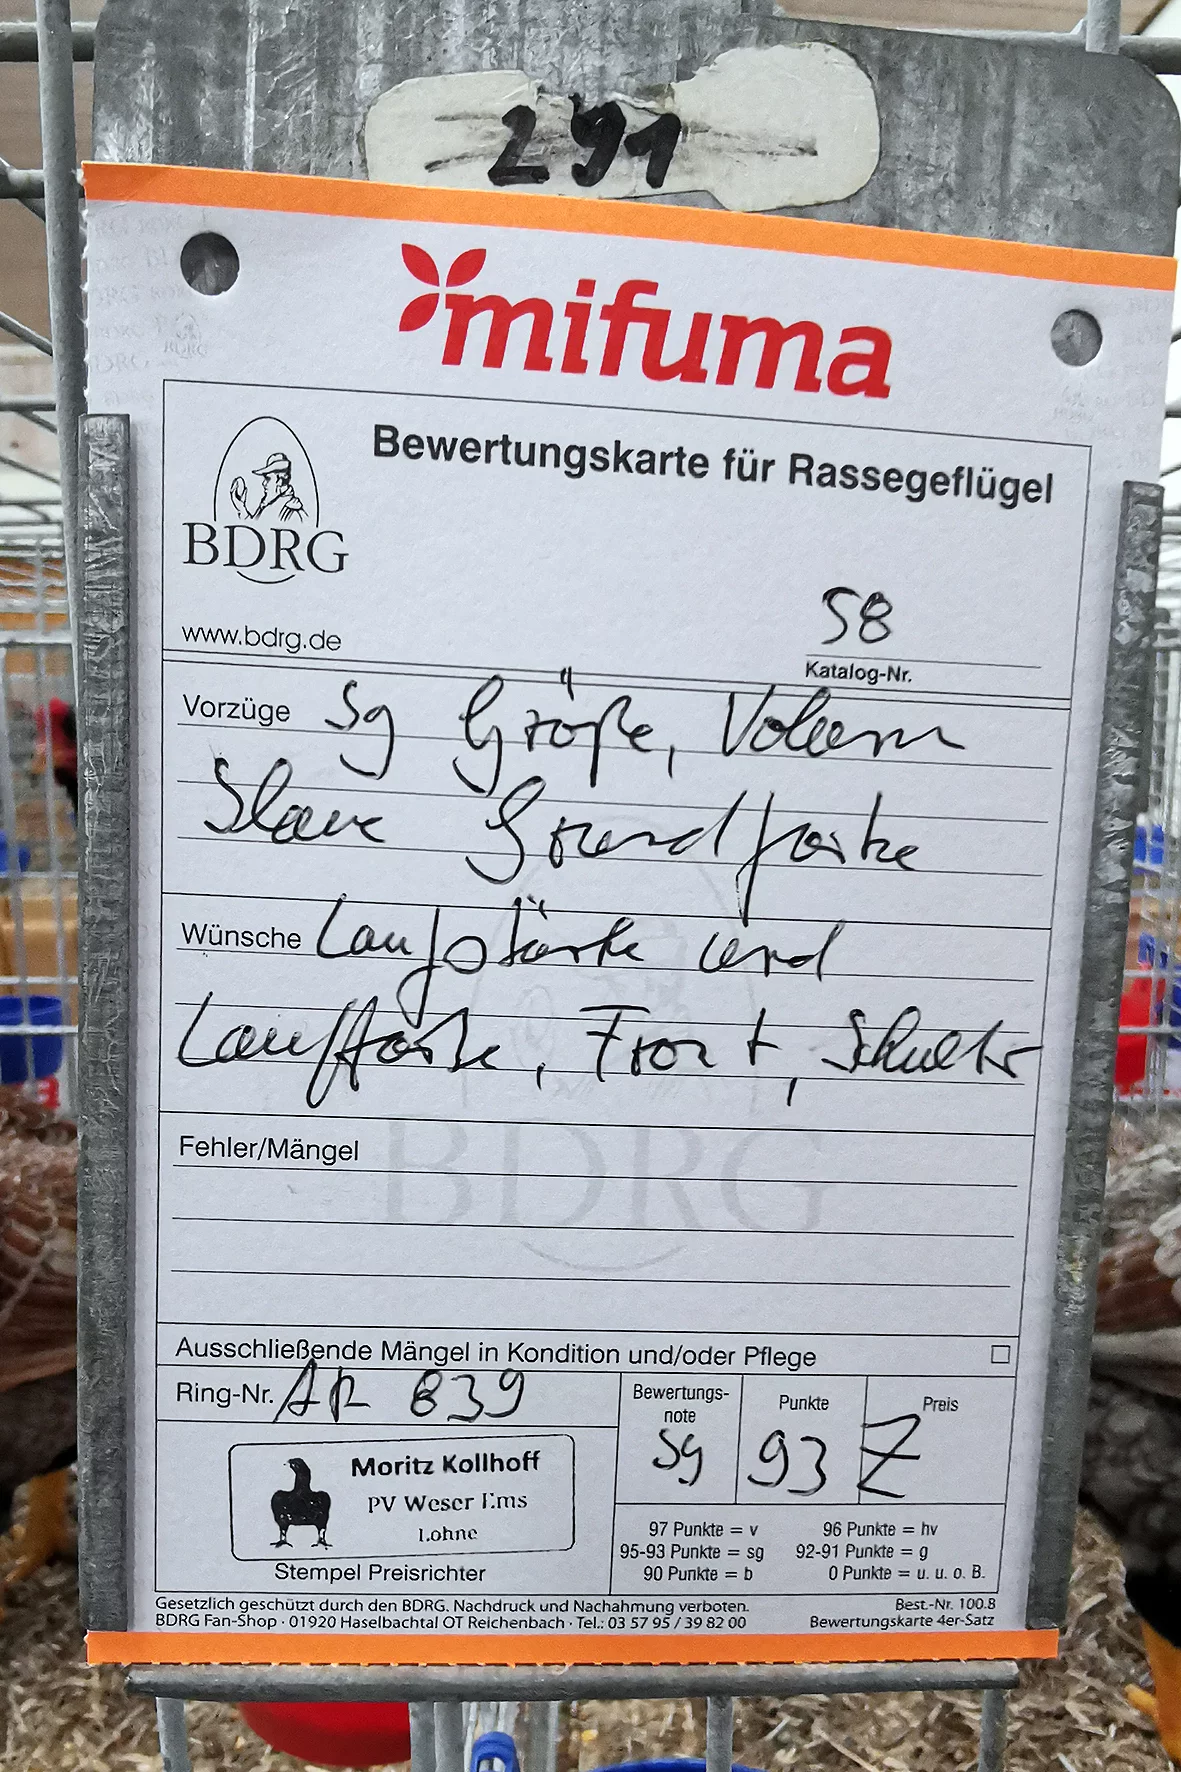 291
mifuma
Bewertungskarte für Rassegeflügel
BDRG
www.bdrg.de
58
Katalog-Nr.
Vorzüge Sg Größe, Volumen
Blaue Grundfarbe
Wünsche Laufstärke und
Lauffarbe, Front, Schulter
BDRG
Fehler/Mängel
Ausschließende Mängel in Kondition und/oder Pflege
Ring-Nr. AR 839
Bewertungs-
note
Sg
Punkte
93
Preis
Z
Moritz Kollhoff
PV Weser Ems
Lohne
Stempel Preisrichter
97 Punkte = v 96 Punkte = hv
95-93 Punkte = sg 92-91 Punkte = g
90 Punkte = b 0 Punkte = u. u. o. B.
Gesetzlich geschützt durch den BDRG. Nachdruck und Nachahmung verboten. Best.-Nr. 100.8
BDRG Fan-Shop · 01920 Haselbachtal OT Reichenbach · Tel.: 03 57 95 / 39 82 00 Bewertungskarte 4er-Satz